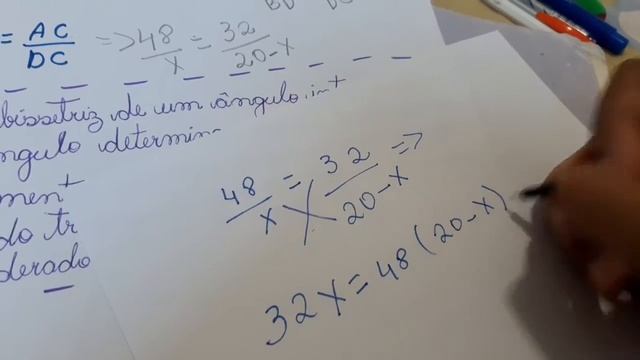 = AC/DC => 48/x = 32/20-x
bissetriz de um ângulo int
ngulo determin
ment
do tr
derado
48/x = 32/20-x =>
32x = 48(20-x)